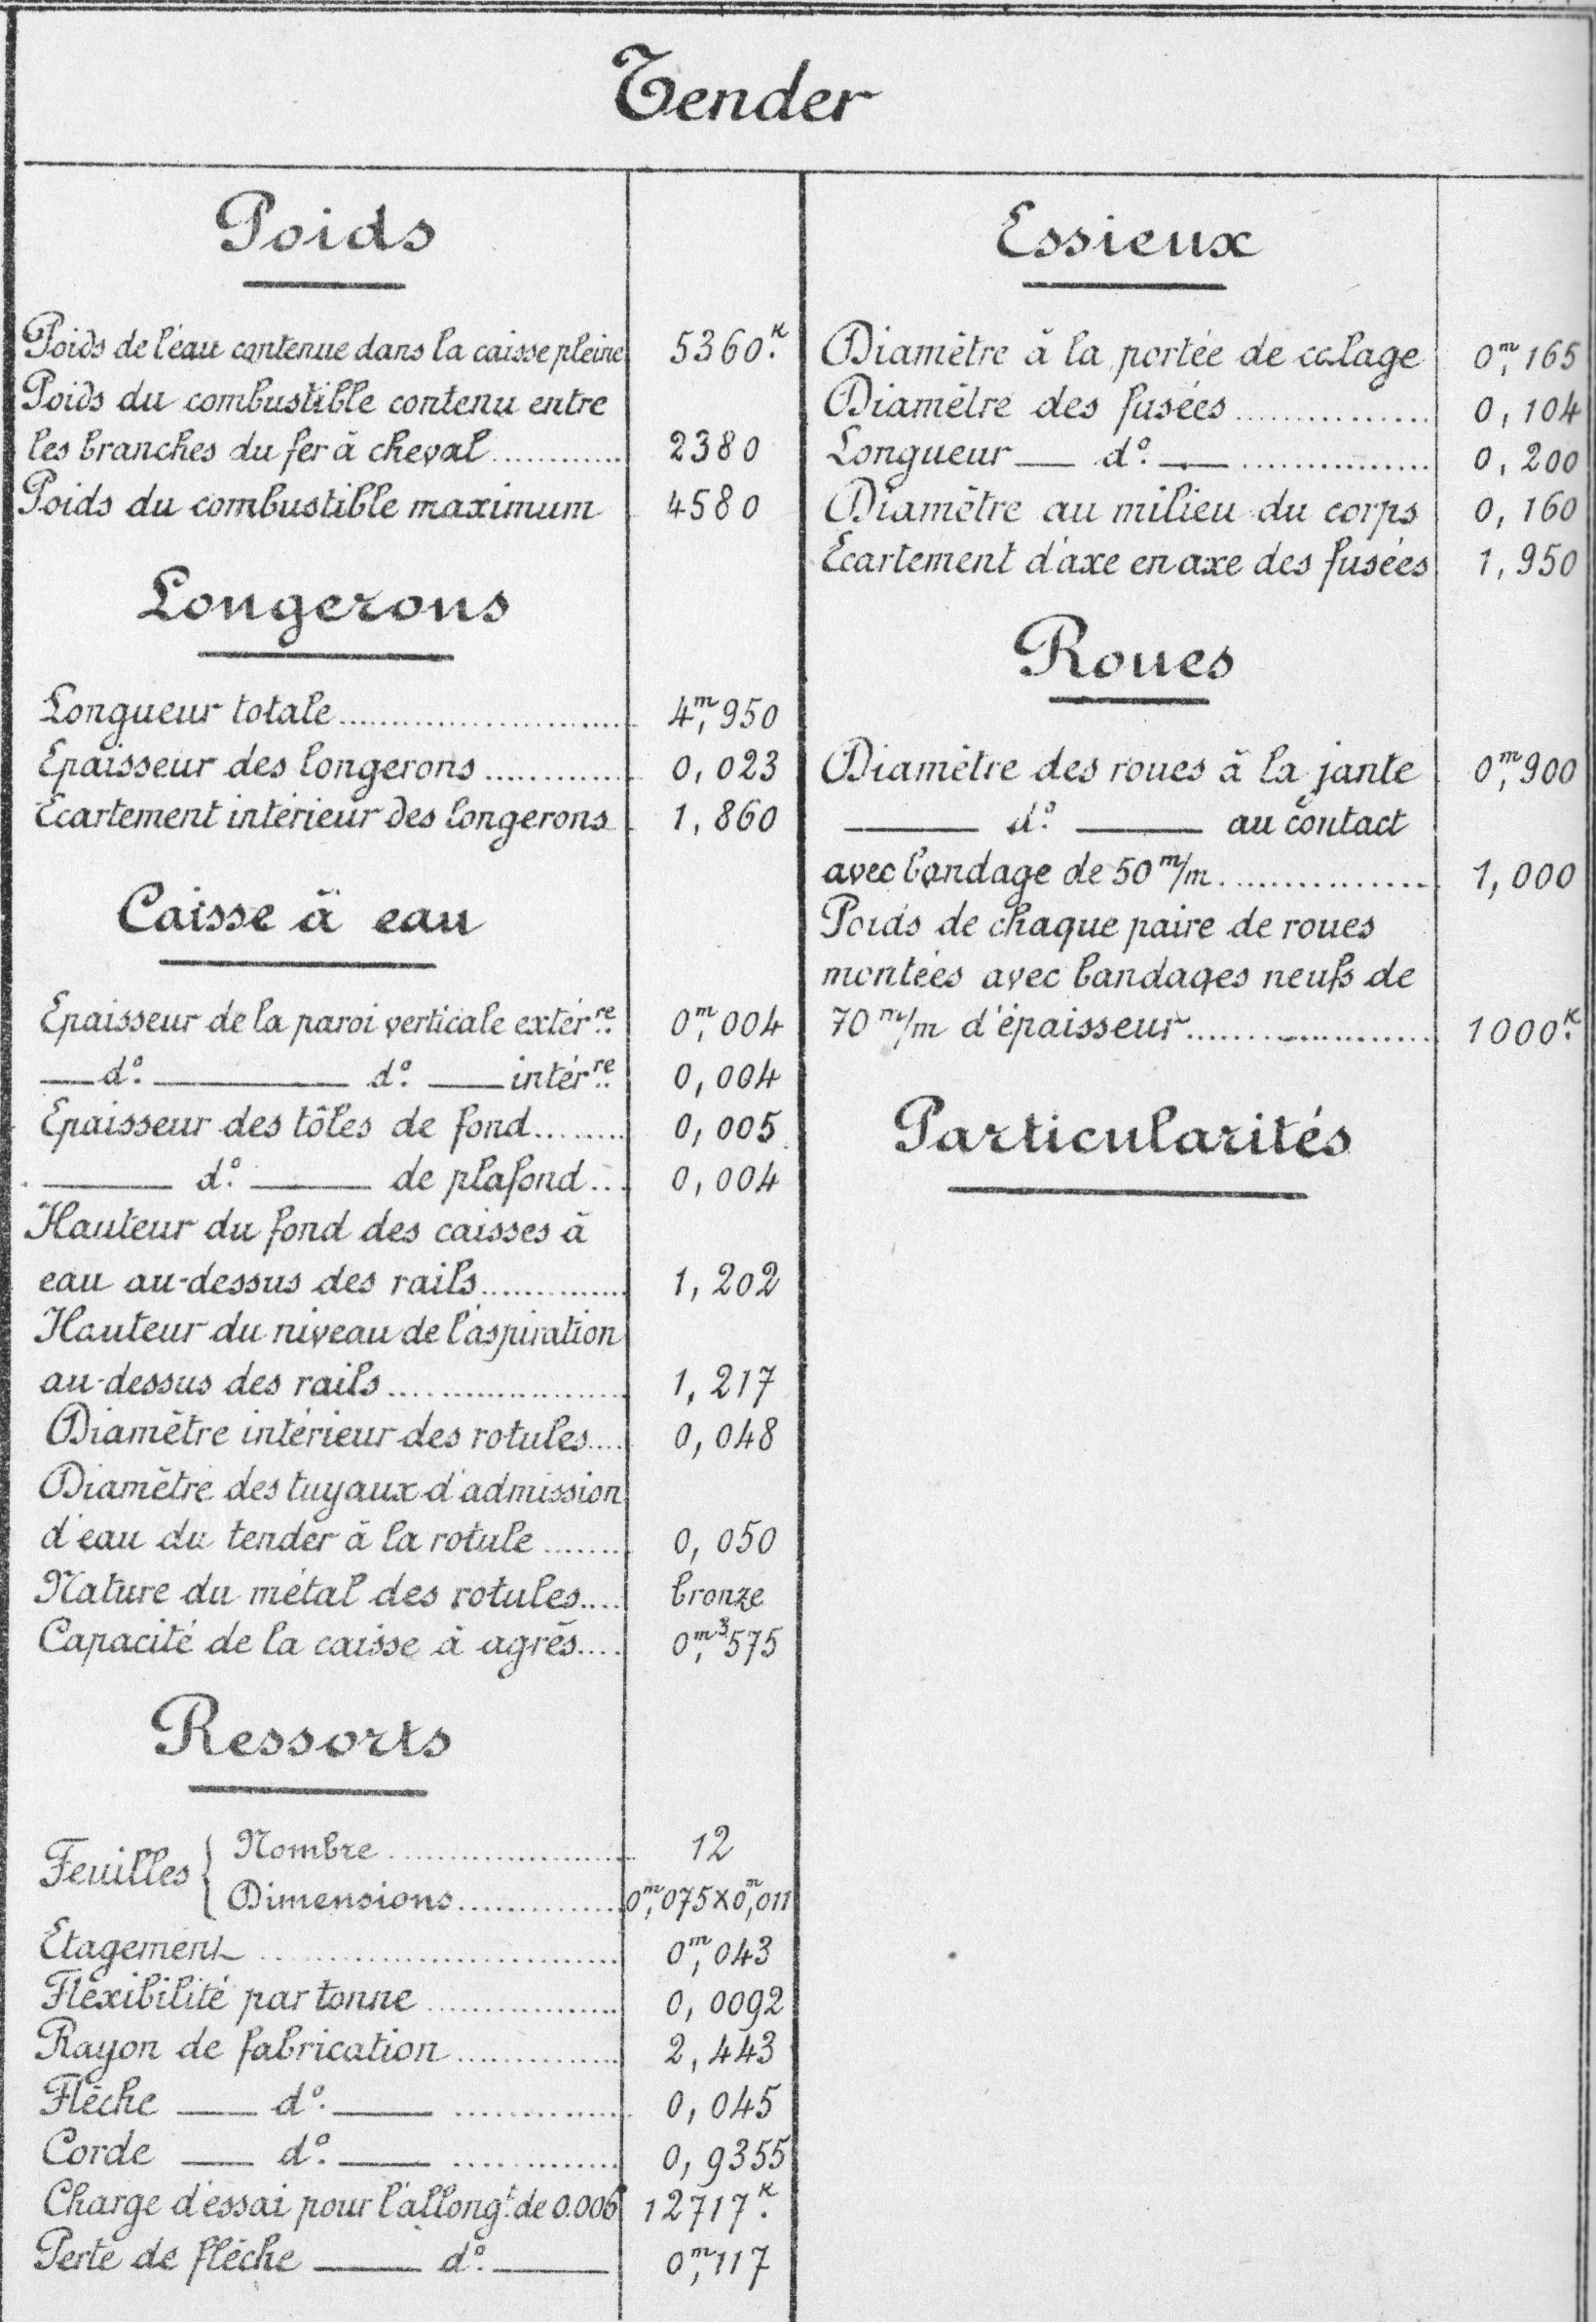 Tender
Poids
Poids de l'eau contenue dans la caisse pleine 5360.ᵏ
Poids du combustible contenu entre
les branches du fer à cheval............ 2380
Poids du combustible maximum 4580
Longerons
Longueur totale............ 4ᵐ,950
Epaisseur des longerons............ 0,023
Ecartement intérieur des longerons 1,860
Caisse à eau
Epaisseur de la paroi verticale extér.ʳᵉ 0ᵐ,004
— d.° — d.° — intér.ʳᵉ 0,004
Epaisseur des tôles de fond......... 0,005
— d.° — de plafond... 0,004
Hauteur du fond des caisses à
eau au-dessus des rails............ 1,202
Hauteur du niveau de l'aspiration
au-dessus des rails............ 1,217
Diamètre intérieur des rotules.... 0,048
Diamètre des tuyaux d'admission
d'eau du tender à la rotule........ 0,050
Nature du métal des rotules.... bronze
Capacité de la caisse à agrès.... 0ᵐ³,575
Ressorts
Feuilles { Nombre............ 12
Dimensions............ 0ᵐ,075×0ᵐ,011
Etagement............ 0ᵐ,043
Flexibilité par tonne............ 0,0092
Rayon de fabrication............ 2,443
Flèche — d.° — ............ 0,045
Corde — d.° — ............ 0,9355
Charge d'essai pour l'allong.ᵗ de 0.006 12717.ᵏ
Perte de flèche — d.° — 0ᵐ,117
Essieux
Diamètre à la portée de calage 0ᵐ,165
Diamètre des fusées............ 0,104
Longueur — d.° — ............ 0,200
Diamètre au milieu du corps 0,160
Ecartement d'axe en axe des fusées 1,950
Roues
Diamètre des roues à la jante 0ᵐ,900
— d.° — au contact
avec bandage de 50 ᵐ/m............ 1,000
Poids de chaque paire de roues
montées avec bandages neufs de
70 ᵐ/m d'épaisseur............ 1000.ᵏ
Particularités